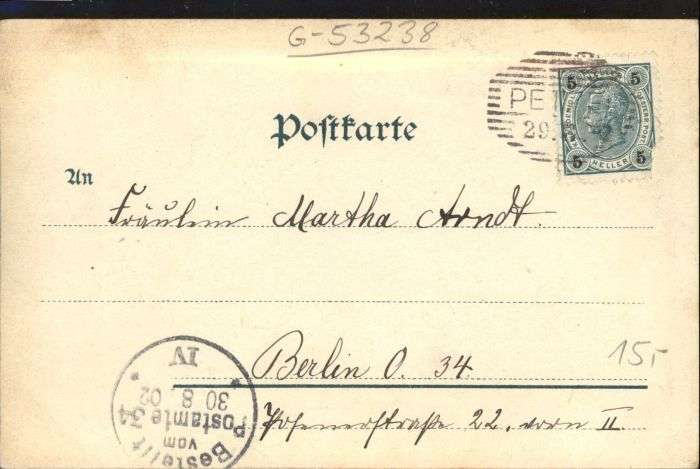 G-53238
PE
29.
5 5
5 HELLER 5
Postkarte
An
Fräulein Martha Arndt.
Berlin O. 34.
15,-
Posenerstraße 22, vorn II.
Bestellt
vom
Postamte 34
30 8. 02
IV